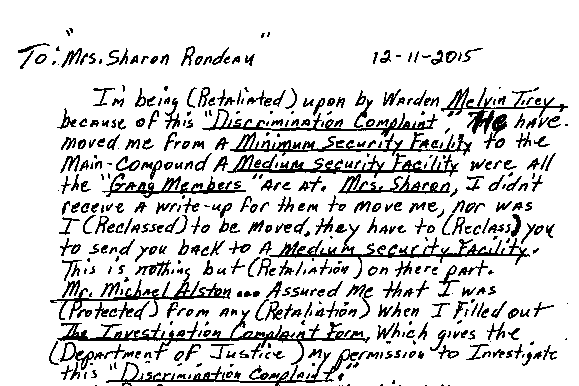 To: "Mrs. Sharon Rondeau" 12-11-2015
I'm being (Retaliated) upon by Warden Melvin Tirey,
because of this "Discrimination Complaint," He have
moved me from A Minimum Security Facility to the
Main-Compound A Medium Security Facility were All
the "Gang Members" Are at. Mrs. Sharon, I didn't
receive A write-up for them to move me, nor was
I (Reclassed) to be moved, they have to (Reclass) you
to send you back to A Medium Security Facility.
This is nothing but (Retaliation) on there part.
Mr. Michael Alston... Assured Me that I was
(Protected) From any (Retaliation) when I Filled out
The Investigation Complaint Form, which gives the
(Department of Justice) my permission to Investigate
this "Discrimination Complaint."